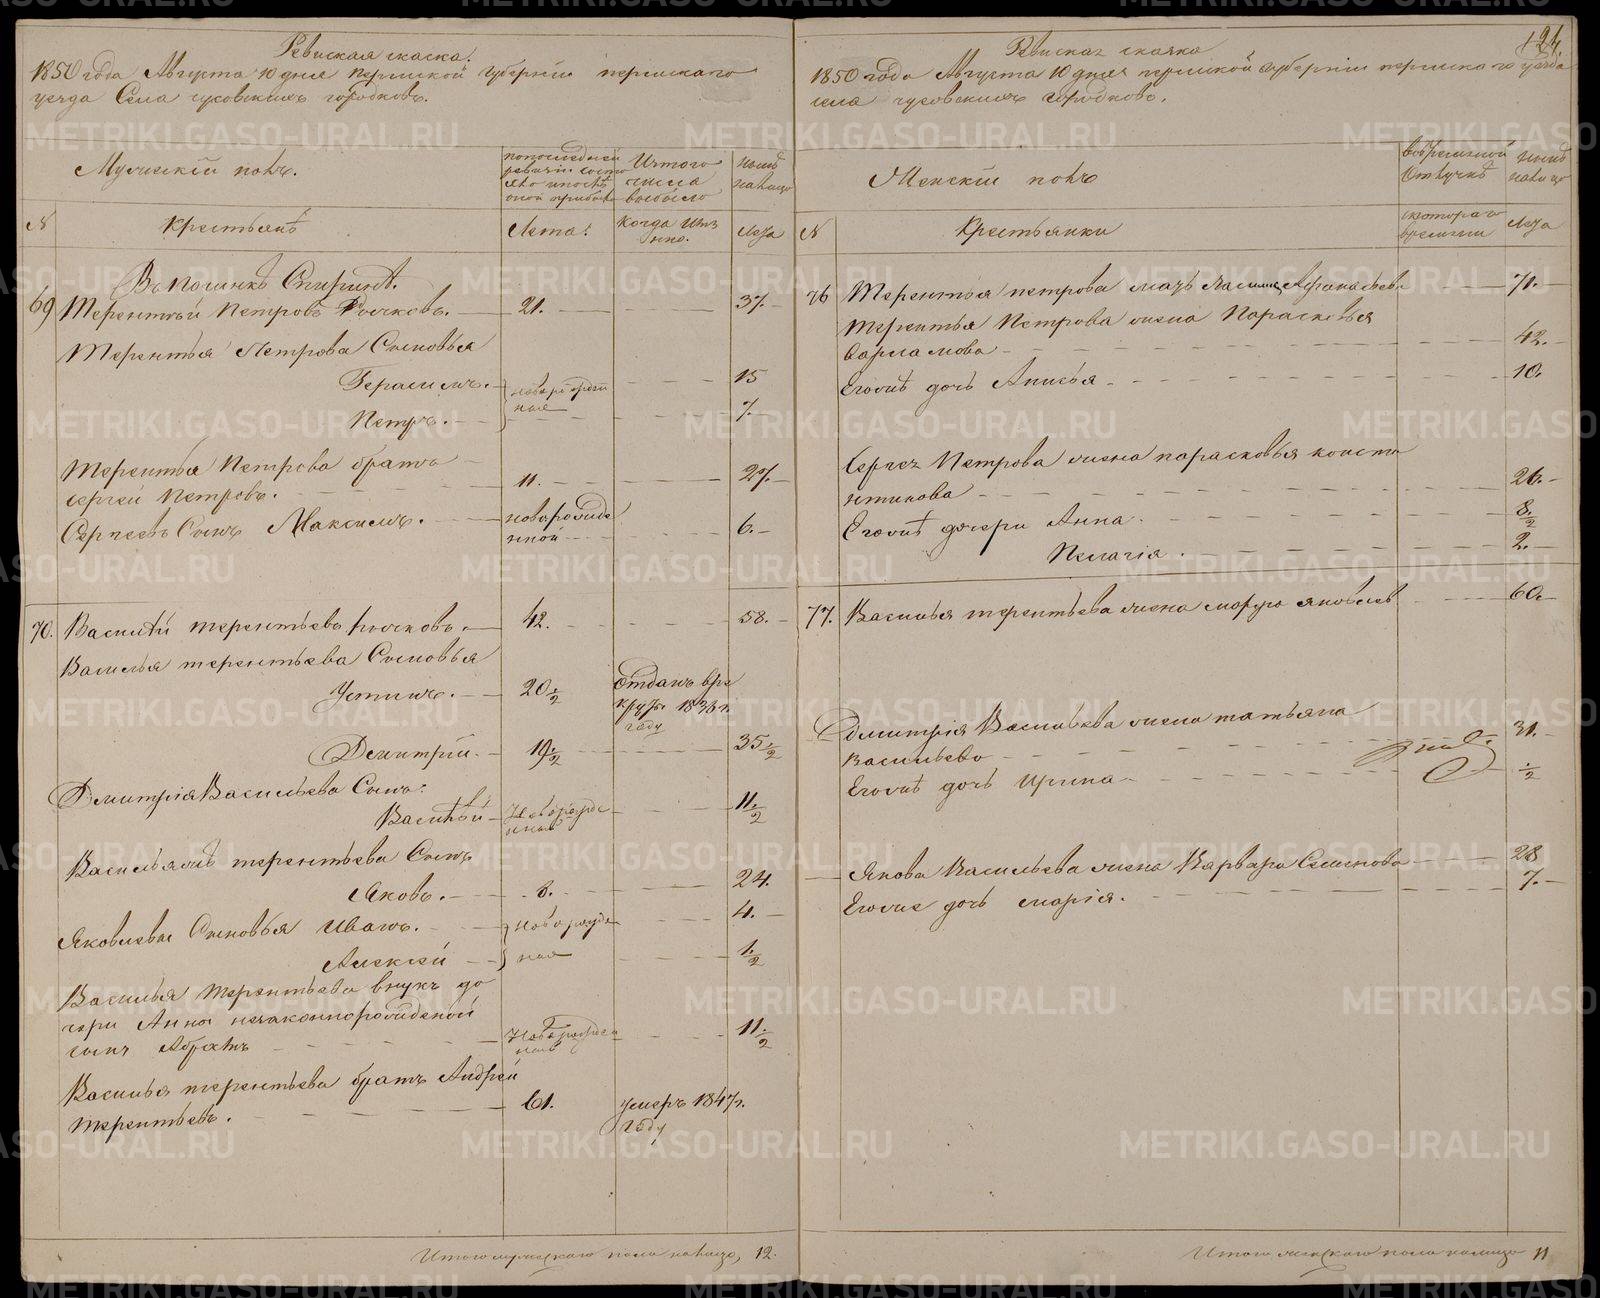 Ревиская скаска.
1850 года Августа 10 дня пермской губернии пермскаго
уезда Села чусовскихъ городковъ.
Мужескiй полъ.
попоследней ревизiи состо яло ипослѣ оной прибыло
Изтого числа выбыло
нынѣ налицо
N
Крестьянѣ
Лета.
Когда имянно.
Лета
Въ Починкѣ Спирина.
69 Терентий Петровъ Рочковъ. 21. 37.
Терентья Петрова Сыновья
Герасимъ. новорожден 15
Петръ. ные 7.
Терентья Петрова братъ
сергей Петровъ. 11. 27.
Сергеевъ Сынъ Максимъ. новорожде нной 6.
70. Василий терентьевъ рочковъ. 42. 58.
Василья терентьева Сыновья
Устинъ. 20 ½ отданъ вре круты 183 г. году
Дмитрiй. 19 ½ 35 ½
Дмитрiя Васильева Сынъ.
Василий Новорожде нной 11 ½
Васильямъ терентьева Сынъ
Яковъ. 8. 24.
Яковлева Сыновья Иванъ. новорожде 4.
Алексей ные ½
Василья терентьева внукъ до
чери Анны незаконнорожденой
сынъ Абрамъ Новорожден ной 11 ½
Василья терентьева братъ Андрей
терентьевъ. 61. умеръ 1847 г. году
Итого мужескаго пола налицо, 12.
124.
Ревиская скаска
1850 года Августа 10 дня пермской губернии пермскаго уезда
села чусовскихъ городковъ.
Женскiй полъ
вовременной отлучкѣ
нынѣ налицо
N
Крестьянки
скотораго времени
Лета
76 Терентья петрова мать Афанасьева 71.
Терентья Петрова жена Парасковья
Варламова 42.
Егожѣ дочь Анисья 10.
Сергея Петрова жена парасковья конста
нтинова 26.
Егожѣ дочери Анна. 8 ½
Пелагiя. 2.
77. Василья терентьева жена марфа яковлев 60.
Дмитрiя Васильева жена татьяна
Васильева 31.
Егожѣ дочь Ирина ½
Якова Васильева жена Варвара Семенова 28
Егоже дочь марiя. 7.
Итого женскаго пола налицо 11
METRIKI.GASO-URAL.RU